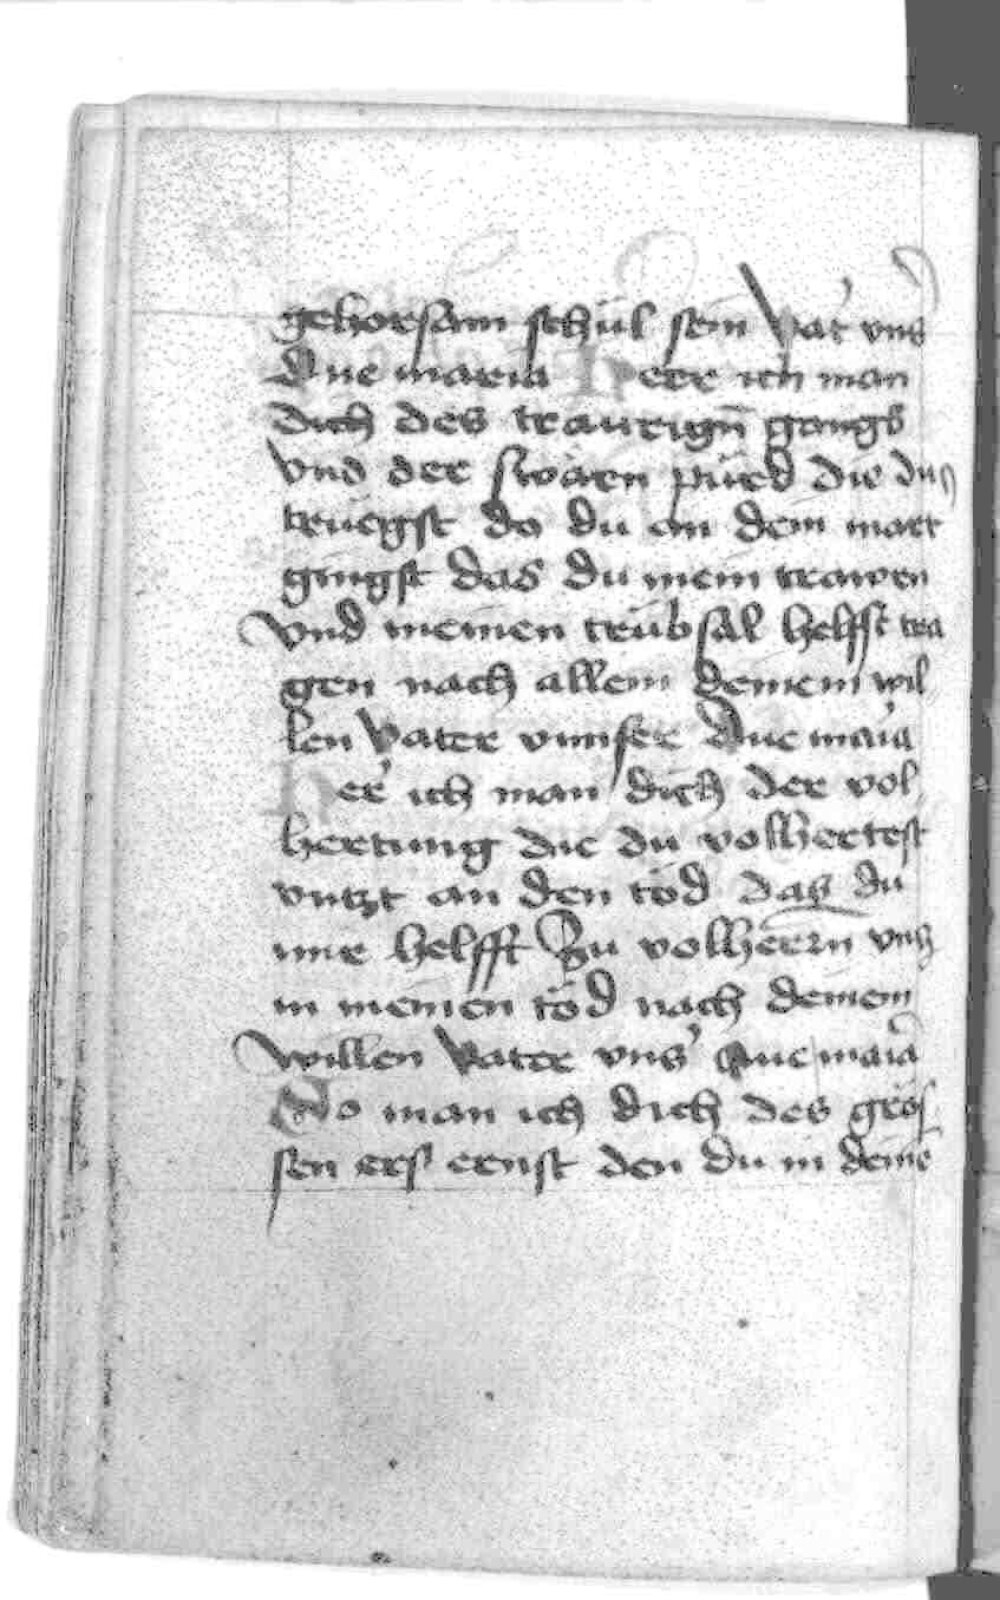 gehorsam schül sein Vat' vns'
Aue maria Herr ich man
dich des traurign̄ gangs
vnd der swären pürd die du
truegst do du an dem marr
gingst das du mein trawrn
vnd meinen trübsal helffst tra
gen nach allem deinem wil
len Vater vnnser Aue maria
Her' ich man dich der vol
hertung die du volhertest
vntzt an den töd das du
mir helfft Zu volherrn vntz
in meinen töd nach deinem
willen Vater vns' Aue maria
So man ich dich des gros
sen ers ernst den du in deinē